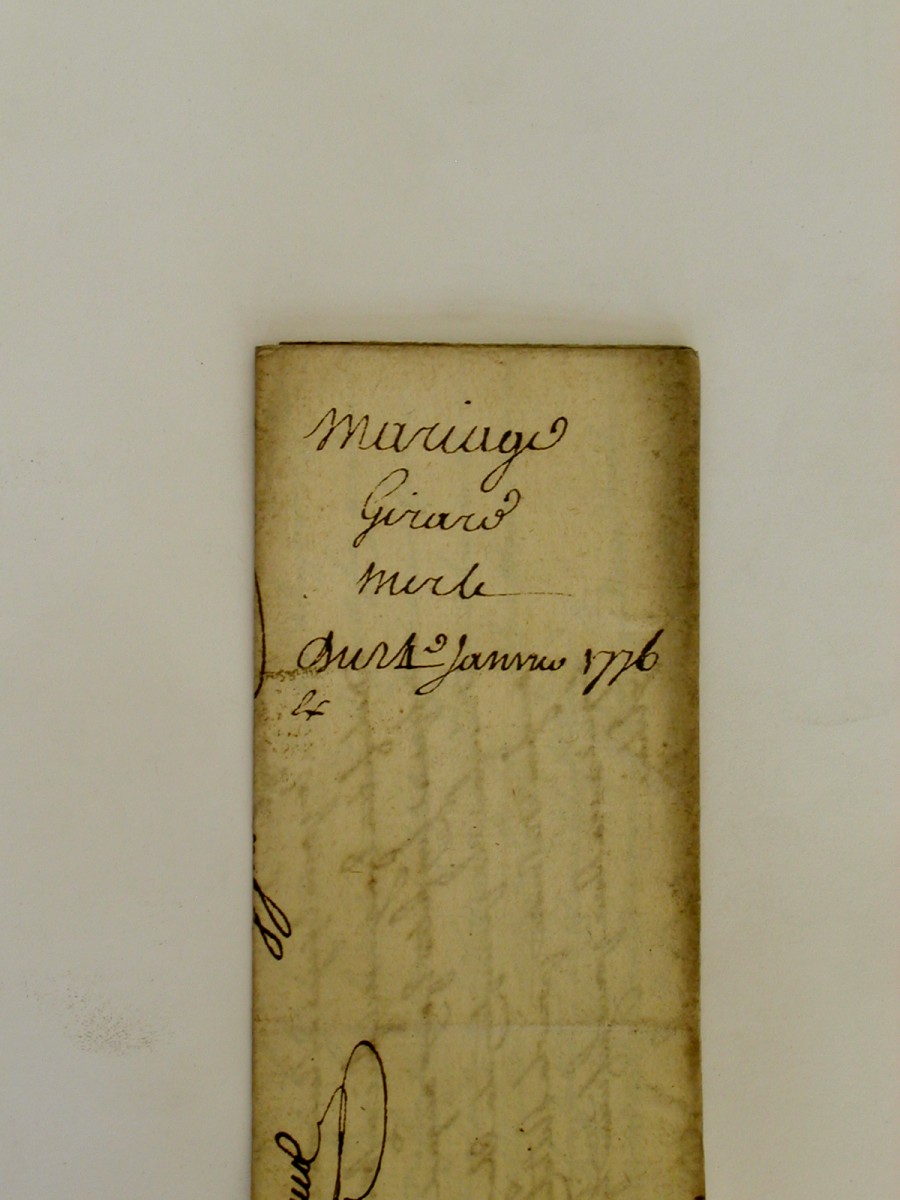 Mariage
Girard
Merle
Janvier 1776